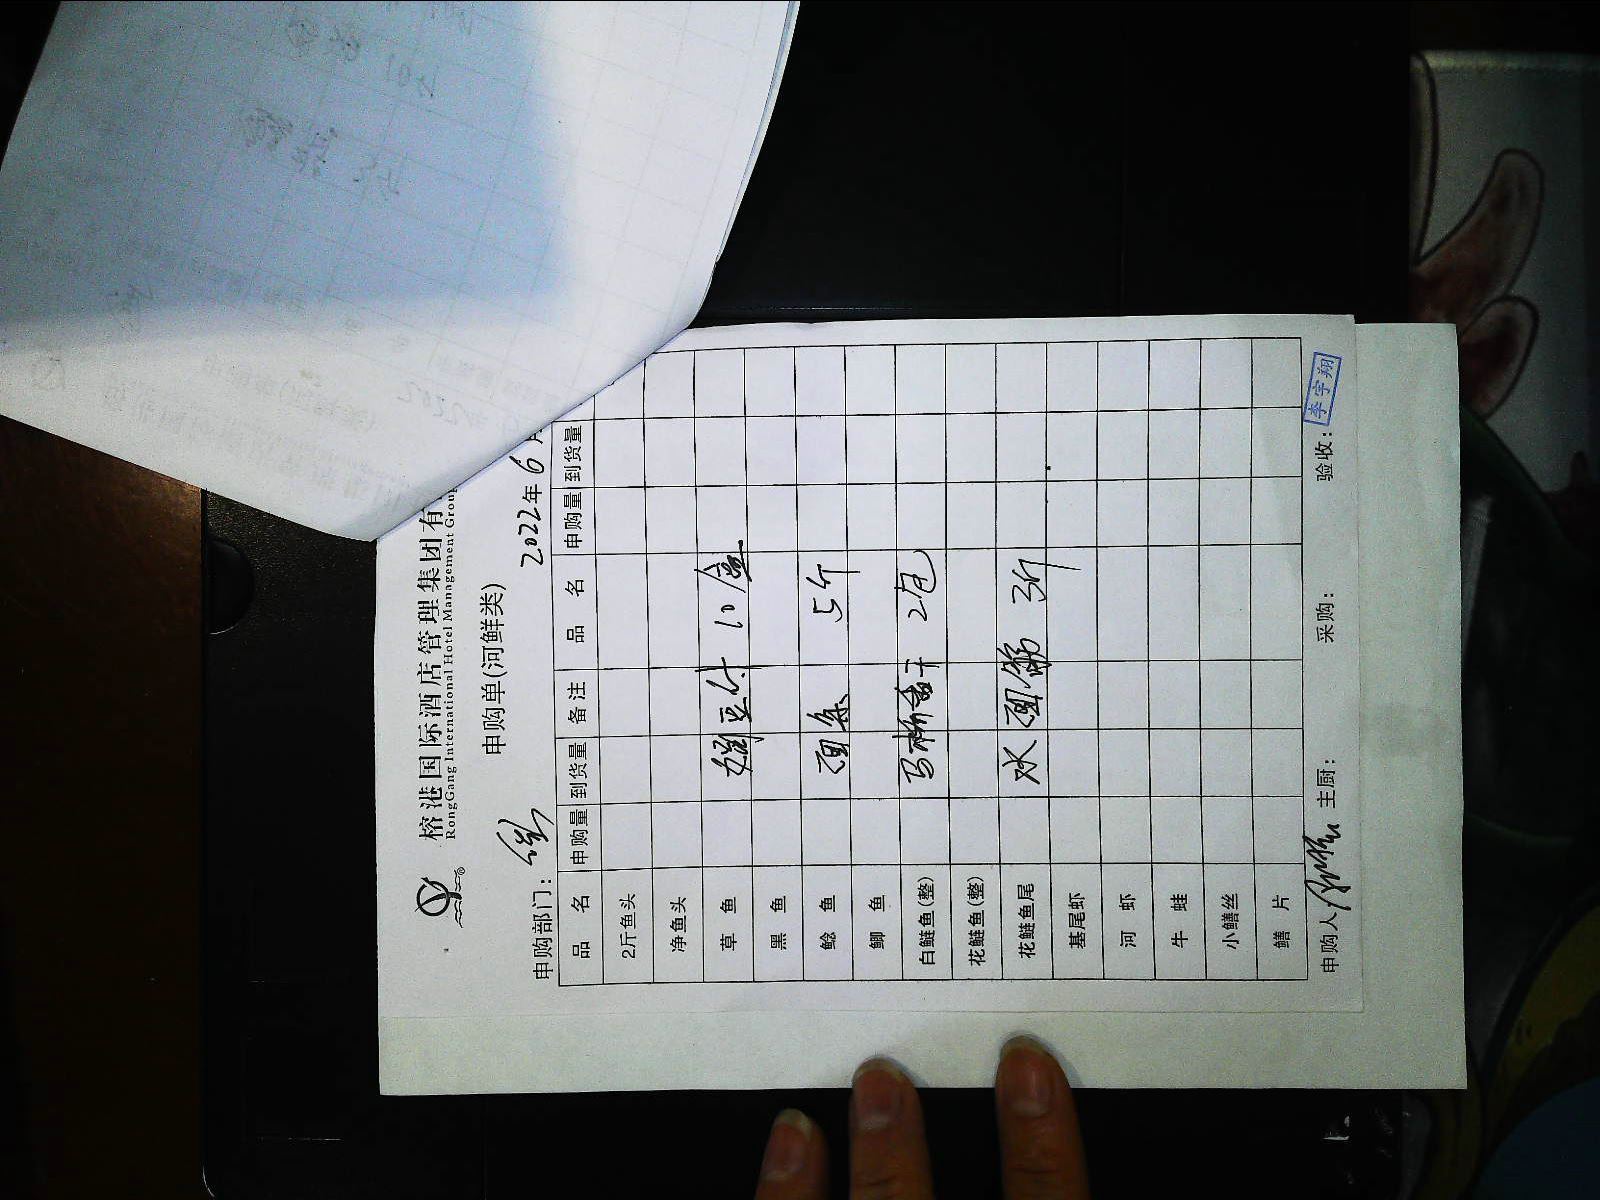 榕港国际酒店管理集团有
RongGang International Hotel Management Group
申购单(河鲜类)
申购部门: 2022年6月
品名 申购量 到货量 备注 品名 申购量 到货量
2斤鱼头
净鱼头
草鱼 10盒
黑鱼
鲶鱼 面条 5斤
鲫鱼
白鲢鱼(整) 马桥香干 2包
花鲢鱼(整)
花鲢鱼尾 水面筋 3斤
基尾虾
河虾
牛蛙
小鳝丝
鳝片
申购人 主厨: 采购: 验收: 李宇翔